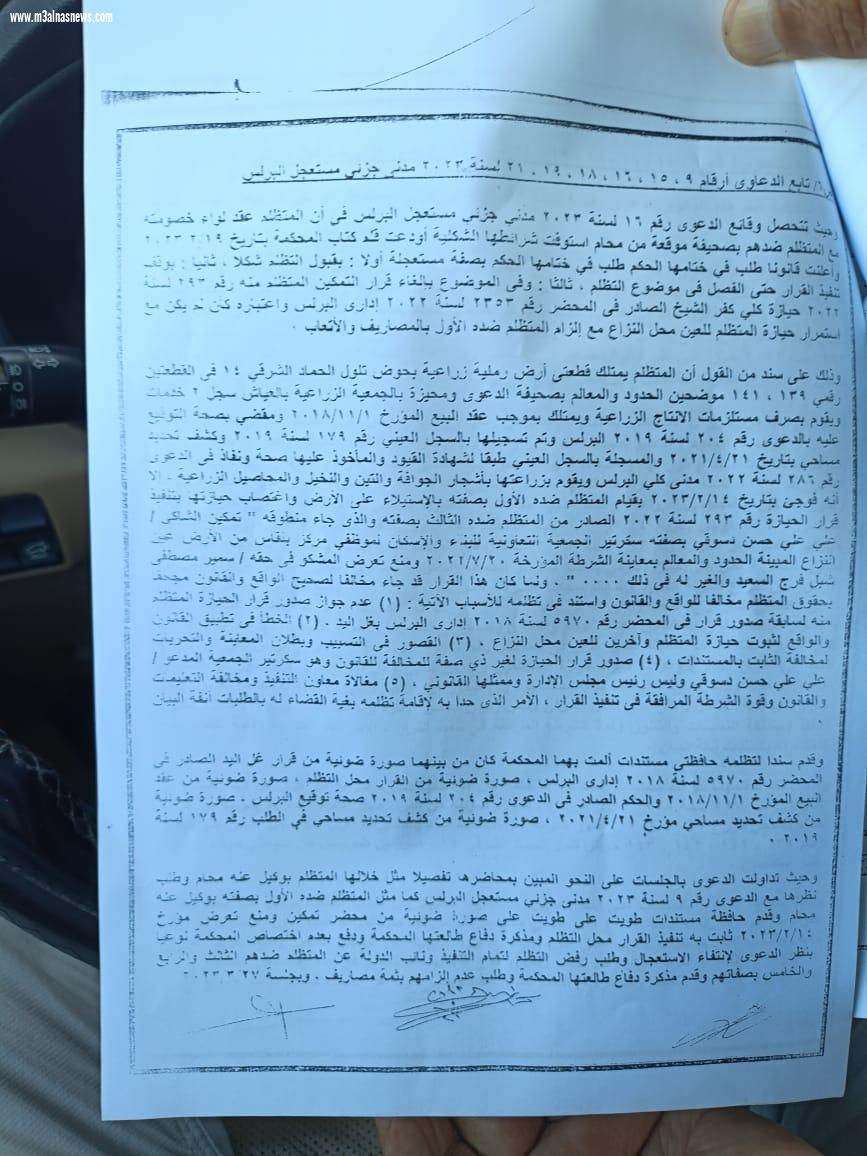 www.m3alnasnews.com
تابع الدعاوى أرقام ٩ ، ١٥ ، ١٦ ، ١٨ ، ١٩ ، ٢١ لسنة ٢٠٢٣ مدني جزئي مستعجل البرلس
وحيث تتحصل وقائع الدعوى رقم ١٦ لسنة ٢٠٢٣ مدني جزئي مستعجل البرلس فى أن المتظلم عقد لواء خصومته
مع المتظلم ضدهم بصحيفة موقعة من محام استوفت شرائطها الشكلية أودعت قلم كتاب المحكمة بتاريخ ٢٠٢٣/٢/١٩
وأعلنت قانونا طلب في ختامها الحكم طلب في ختامها الحكم بصفة مستعجلة أولا : بقبول التظلم شكلا ، ثانيا : بوقف
تنفيذ القرار حتى الفصل فى موضوع التظلم ، ثالثا : وفى الموضوع بإلغاء قرار التمكين المتظلم منه رقم ٢٩٣ لسنة
٢٠٢٢ حيازة كلي كفر الشيخ الصادر فى المحضر رقم ٢٣٥٣ لسنة ٢٠٢٢ إدارى البرلس واعتباره كأن لم يكن مع
استمرار حيازة المتظلم للعين محل النزاع مع إلزام المتظلم ضده الأول بالمصاريف والأتعاب .
وذلك على سند من القول أن المتظلم يمتلك قطعتى أرض رملية زراعية بحوض تلول الحماد الشرقي ١٤ فى القطعتين
رقمي ١٣٩ ، ١٤١ موضحين الحدود والمعالم بصحيفة الدعوى ومحيزة بالجمعية الزراعية بالعياش سجل ٢ خدمات
ويقوم بصرف مستلزمات الانتاج الزراعية ويمتلك بموجب عقد البيع المؤرخ ٢٠١٨/١١/١ ومقضي بصحة التوقيع
عليه بالدعوى رقم ٢٠٤ لسنة ٢٠١٩ البرلس وتم تسجيلها بالسجل العيني رقم ١٧٩ لسنة ٢٠١٩ وكشف تحديد
مساحي بتاريخ ٢٠٢١/٤/٢١ والمسجلة بالسجل العيني طبقا لشهادة القيود والمأخوذ عليها صحة ونفاذ فى الدعوى
رقم ٢٨٦ لسنة ٢٠٢٢ مدني كلي البرلس ويقوم بزراعتها بأشجار الجوافة والتين والنخيل والمحاصيل الزراعية ، إلا
أنه فوجئ بتاريخ ٢٠٢٣/٢/١٤ بقيام المتظلم ضده الأول بصفته بالإستيلاء على الأرض واغتصاب حيازتها بتنفيذ
قرار الحيازة رقم ٢٩٣ لسنة ٢٠٢٢ الصادر من المتظلم ضده الثالث بصفته والذى جاء منطوقه " تمكين الشاكى /
علي علي حسن دسوقي بصفته سكرتير الجمعية التعاونية للبناء والإسكان لموظفي مركز بنفاس من الأرض عين
النزاع المبينة الحدود والمعالم بمعاينة الشرطة المؤرخة ٢٠٢٢/٧/٢٠ ومنع تعرض المشكو فى حقه / سمير مصطفى
شبل فرج السعيد والغير له فى ذلك ٠٠٠٠ " ، ولما كان هذا القرار قد جاء مخالفا لصحيح الواقع والقانون مجحف
بحقوق المتظلم مخالفا للواقع والقانون واستند فى تظلمه للأسباب الآتية : (١) عدم جواز صدور قرار الحيازة المتظلم
منه لسابقة صدور قرار فى المحضر رقم ٥٩٧٠ لسنة ٢٠١٨ إدارى البرلس بغل اليد . (٢) الخطأ فى تطبيق القانون
والواقع لثبوت حيازة المتظلم وآخرين للعين محل النزاع ، (٣) القصور فى التسبيب وبطلان المعاينة والتحريات
لمخالفة الثابت بالمستندات ، (٤) صدور قرار الحيازة لغير ذي صفة للمخالفة للقانون وهو سكرتير الجمعية المدعو /
علي علي حسن دسوقي وليس رئيس مجلس الإدارة وممثلها القانوني ، (٥) مغالاة معاون التنفيذ ومخالفة التعليمات
والقانون وقوة الشرطة المرافقة فى تنفيذ القرار ، الأمر الذى حدا به لإقامة تظلمه بغية القضاء له بالطلبات آنفة البيان
.
وقدم سندا لتظلمه حافظتي مستندات ألمت بهما المحكمة كان من بينهما صورة ضوئية من قرار غل اليد الصادر فى
المحضر رقم ٥٩٧٠ لسنة ٢٠١٨ إدارى البرلس ، صورة ضوئية من القرار محل التظلم ، صورة ضوئية من عقد
البيع المؤرخ ٢٠١٨/١١/١ والحكم الصادر فى الدعوى رقم ٢٠٤ لسنة ٢٠١٩ صحة توقيع البرلس ، صورة ضوئية
من كشف تحديد مساحي مؤرخ ٢٠٢١/٤/٢١ ، صورة ضوئية من كشف تحديد مساحي في الطلب رقم ١٧٩ لسنة
٢٠١٩ .
وحيث تداولت الدعوى بالجلسات على النحو المبين بمحاضرها تفصيلا مثل خلالها المتظلم بوكيل عنه محام وطلب
نظرها مع الدعوى رقم ٩ لسنة ٢٠٢٣ مدنى جزئي مستعجل البرلس كما مثل المتظلم ضده الأول بصفته بوكيل عنه
محام وقدم حافظة مستندات طويت على طويت على صورة ضوئية من محضر تمكين ومنع تعرض مؤرخ
٢٠٢٣/٢/١٤ ثابت به تنفيذ القرار محل التظلم ومذكرة دفاع طالعتها المحكمة ودفع بعدم اختصاص المحكمة نوعيا
بنظر الدعوى لإنتفاء الاستعجال وطلب رفض التظلم لتمام التنفيذ ونائب الدولة عن المتظلم ضدهم الثالث والرابع
والخامس بصفاتهم وقدم مذكرة دفاع طالعتها المحكمة وطلب عدم إلزامهم بثمة مصاريف ، وبجلسة ٢٠٢٣/٣/٢٧